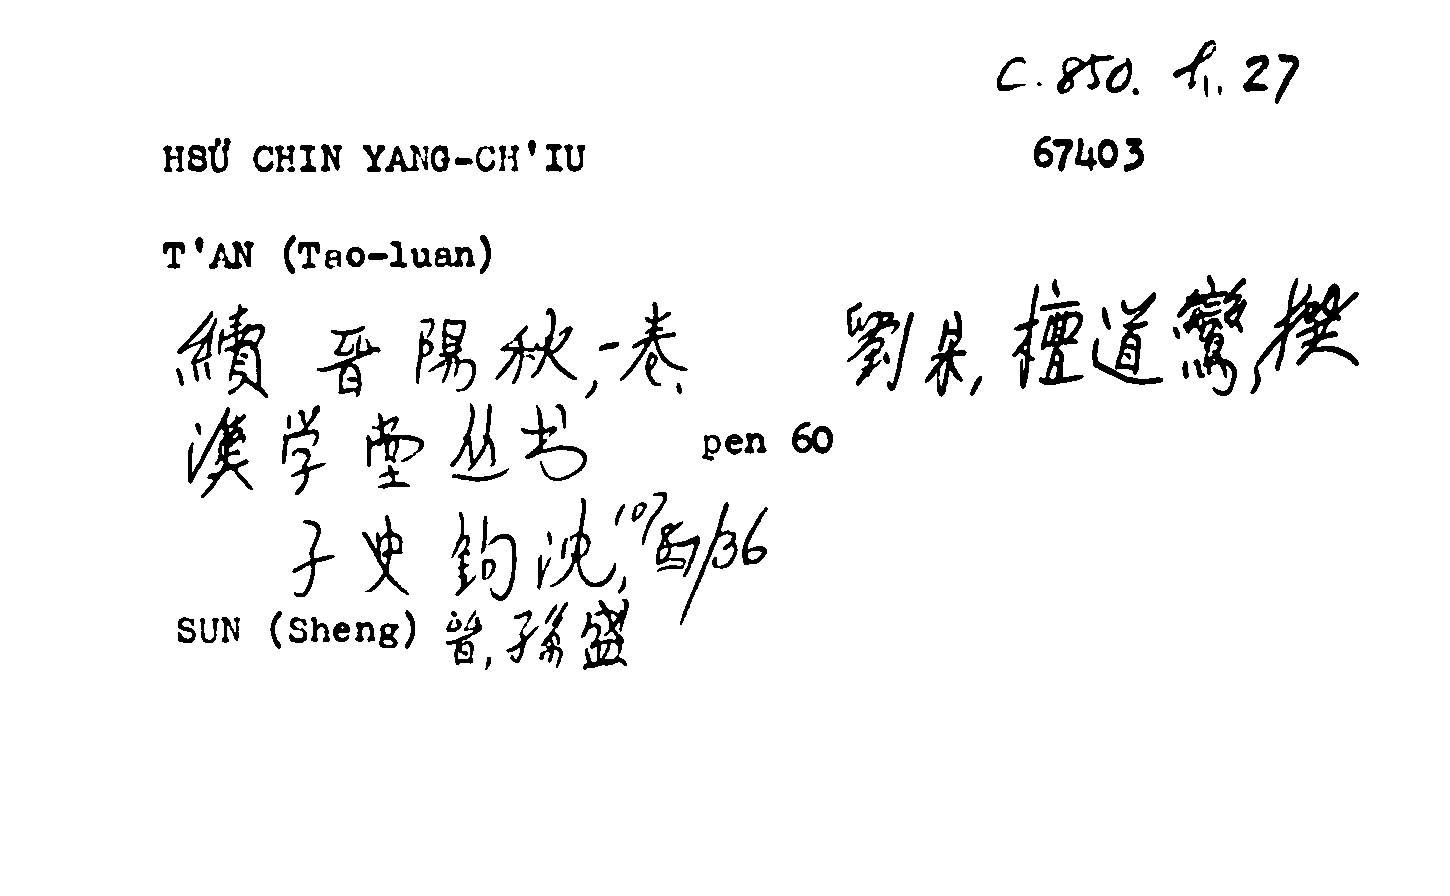 C. 850. h. 27
HSÜ CHIN YANG-CH'IU 67403
T'AN (Tao-luan)
續晉陽秋,一卷. 劉宋,檀道鸞,撰
漢学堂丛书 pen 60
子史鈎沈, 107/36
SUN (Sheng) 晉,孫盛